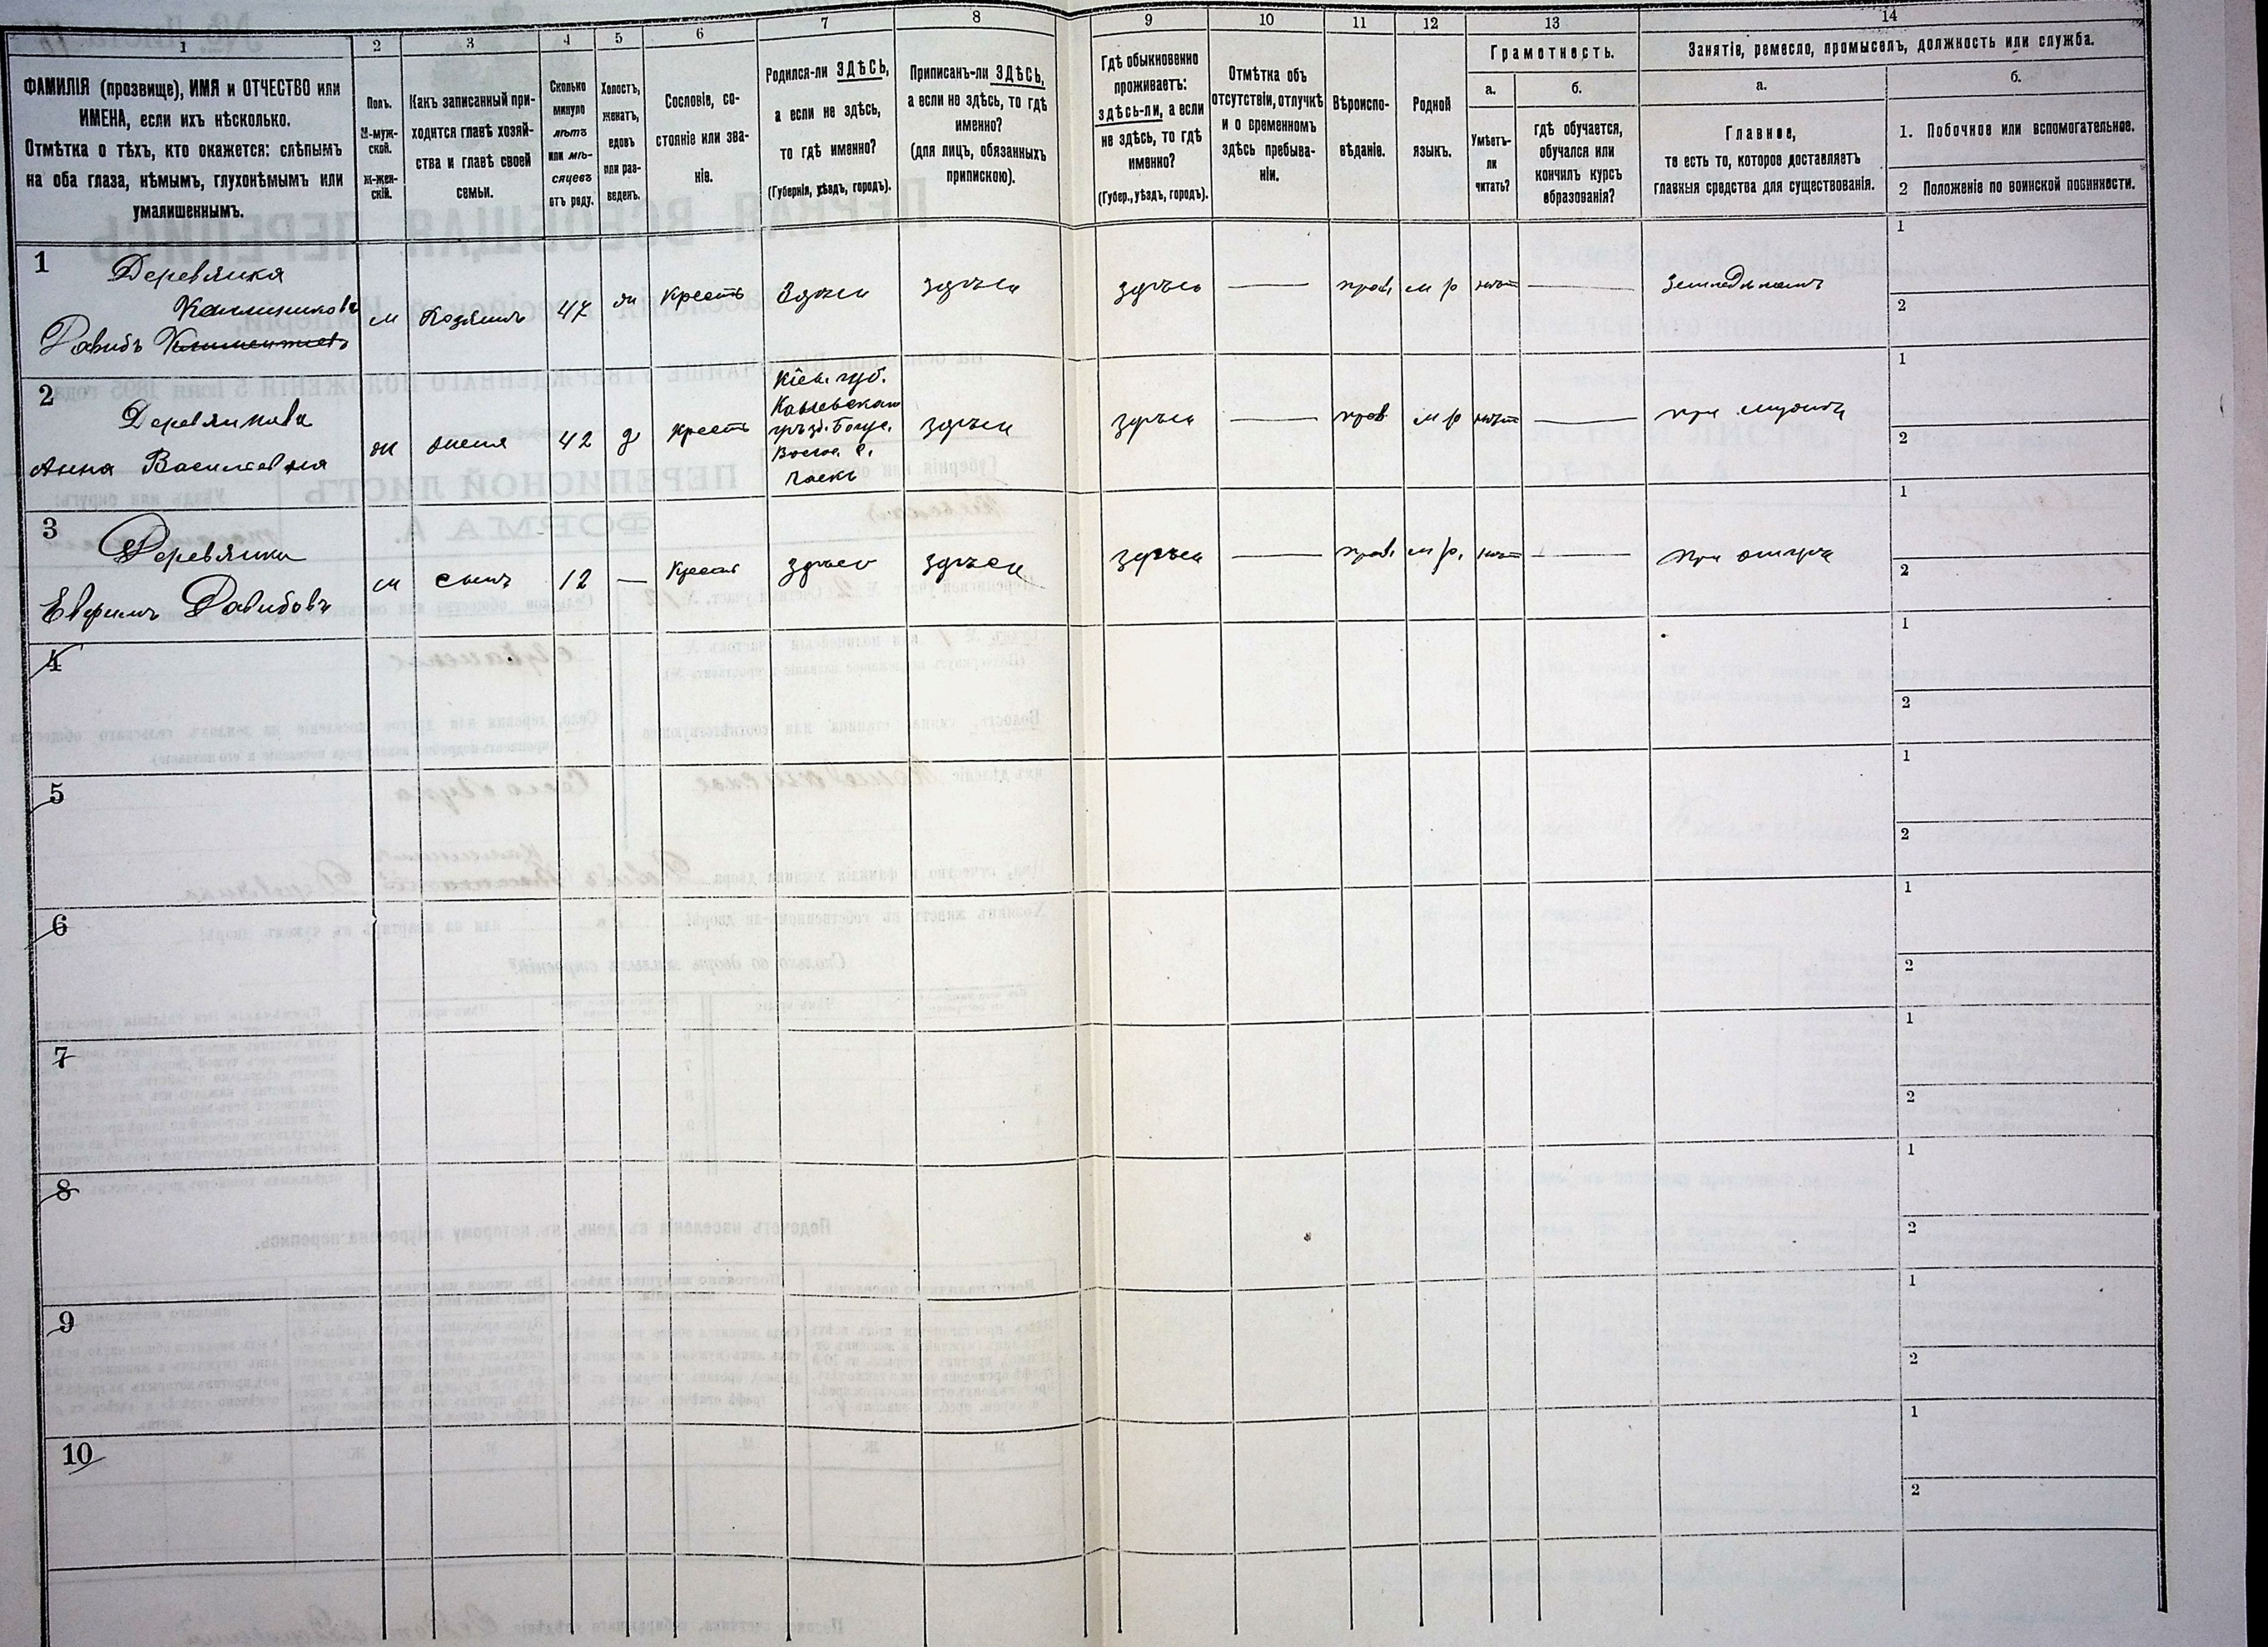 1
2
3
4
5
6
7
8
9
10
11
12
13
14
ФАМИЛІЯ (прозвище), ИМЯ и ОТЧЕСТВО или
ИМЕНА, если ихъ нѣсколько.
Отмѣтка о тѣхъ, кто окажется: слѣпымъ
на оба глаза, нѣмымъ, глухонѣмымъ или
умалишеннымъ.
Полъ.
М-муж-
ской.
Ж-жен-
скій.
Какъ записанный при-
ходится главѣ хозяй-
ства и главѣ своей
семьи.
Сколько
минуло
лѣтъ
или мѣ-
сяцевъ
отъ роду.
Холостъ,
женатъ,
вдовъ
или раз-
веденъ.
Сословіе, со-
стояніе или зва-
ніе.
Родился-ли ЗДѢСЬ,
а если не здѣсь,
то гдѣ именно?
(Губернія, уѣздъ, городъ).
Приписанъ-ли ЗДѢСЬ,
а если не здѣсь, то гдѣ
именно?
(для лицъ, обязанныхъ
припискою).
Гдѣ обыкновенно
проживаетъ:
здѣсь-ли, а если
не здѣсь, то гдѣ
именно?
(Губер., уѣздъ, городъ).
Отмѣтка объ
отсутствіи, отлучкѣ
и о временномъ
здѣсь пребыва-
ніи.
Вѣроиспо-
вѣданіе.
Родной
языкъ.
Грамотность.
а.
Умѣетъ-
ли
читать?
б.
гдѣ обучается,
обучался или
кончилъ курсъ
образованія?
Занятіе, ремесло, промыселъ, должность или служба.
а.
Главное,
то есть то, которое доставляетъ
главныя средства для существованія.
б.
1. Побочное или вспомогательное.
2 Положеніе по воинской повинности.
1 Деревянка
Калиниковъ
Давидъ Климентіевъ
м Хозяинъ 47 ж Крестъ Здѣсь здѣсь здѣсь — прав. м р нѣтъ — земледѣлецъ
1
2
2 Деревянкова
Анна Василіевна
ж жена 42 з крестъ
Кіев. губ.
Каневскаго
уѣзд.
здѣсь здѣсь — прав м р нѣтъ — при мужѣ
1
2
3 Деревянка
Евфимъ Давидовъ
м сынъ 12 — Крест здѣсь здѣсь здѣсь — прав. м р. нѣтъ — при отцѣ
1
2
4
1
2
5
1
2
6
1
2
7
1
2
8
1
2
9
1
2
10
1
2